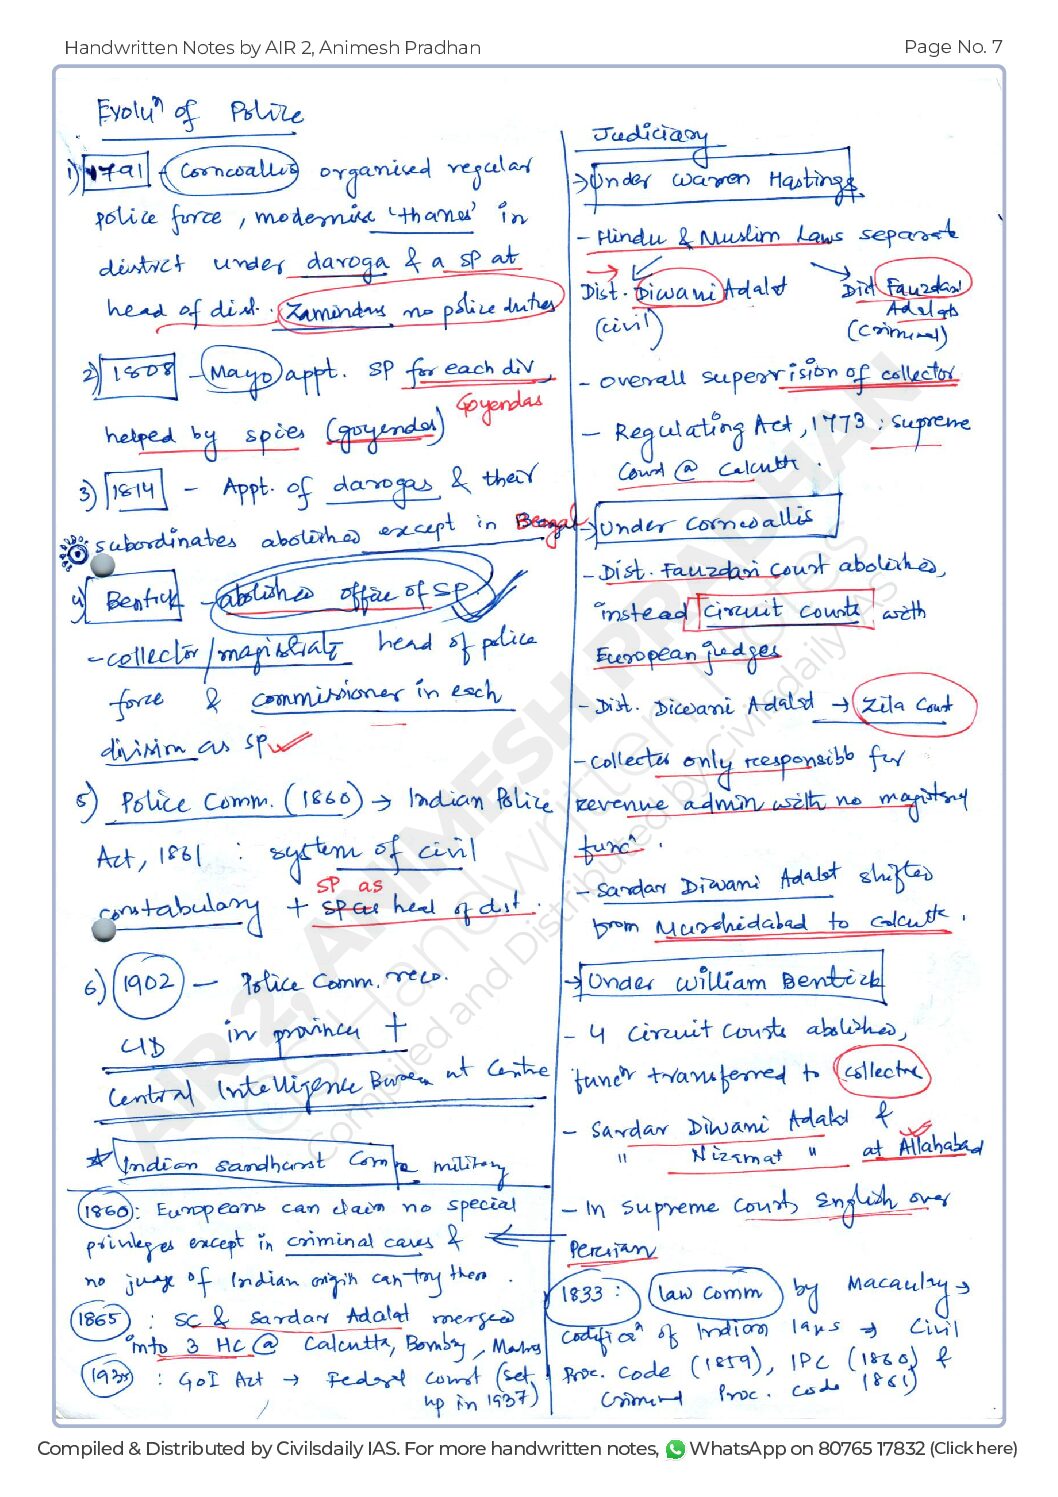 Handwritten Notes by AIR 2, Animesh Pradhan
Page No. 7
Evoluⁿ of Police
1) 1791 - Cornwallis organised regular
police force, modernise 'thanas' in
district under daroga & a SP at
head of dist. Zamindars no police duties
2) 1808 - Mayo appt. SP for each div,
Goyendas
helped by spies (goyendas)
3) 1814 - Appt. of darogas & their
subordinates abolished except in Bengal
4) Bentick - abolished office of SP
- collector/magistrate head of police
force & commissioner in each
division as SP
5) Police Comm. (1860) → Indian Police
Act, 1861 : system of civil
SP as
constabulary + SP as head of dist.
6) 1902 - Police Comm. reco.
CID in province +
Central Intelligence Bureau at Centre
* Indian Sandhurst Comm military
1860: Europeans can claim no special
privileges except in criminal cases &
no judge of Indian origin can try them.
1865 : SC & Sardar Adalat merged
into 3 HC @ Calcutta, Bombay, Madras
1935 : GoI Act → Federal Court (set
up in 1937)
Judiciary
→ Under Warren Hastings
- Hindu & Muslim Laws separate
Dist. Diwani Adalat Dist Fauzdari
Adalat
(civil) (Criminal)
- overall supervision of collector
- Regulating Act, 1773 : Supreme
Court @ Calcutta.
→ Under Cornwallis
- Dist. Fauzdari Court abolished,
instead circuit courts with
European judges
- Dist. Diwani Adalat → Zila Court
- Collector only responsible for
revenue admin with no magistery
funcⁿ.
- Sardar Diwani Adalat shifted
from Murshidabad to Calcutta.
→ Under William Bentick
- 4 Circuit Courts abolished,
funcⁿ transferred to collector
- Sardar Diwani Adalat &
" Nizamat " at Allahabad
- In Supreme Court, English over
Persian
1833 : law comm by Macaulay →
Codificaⁿ of Indian laws → Civil
Proc. Code (1859), IPC (1860) &
Criminal Proc. Code 1861)
AIR 2, ANIMESH PRADHAN
CSE Handwritten Notes
Compiled and Distributed by Civilsdaily IAS
Compiled & Distributed by Civilsdaily IAS. For more handwritten notes, WhatsApp on 80765 17832 (Click here)